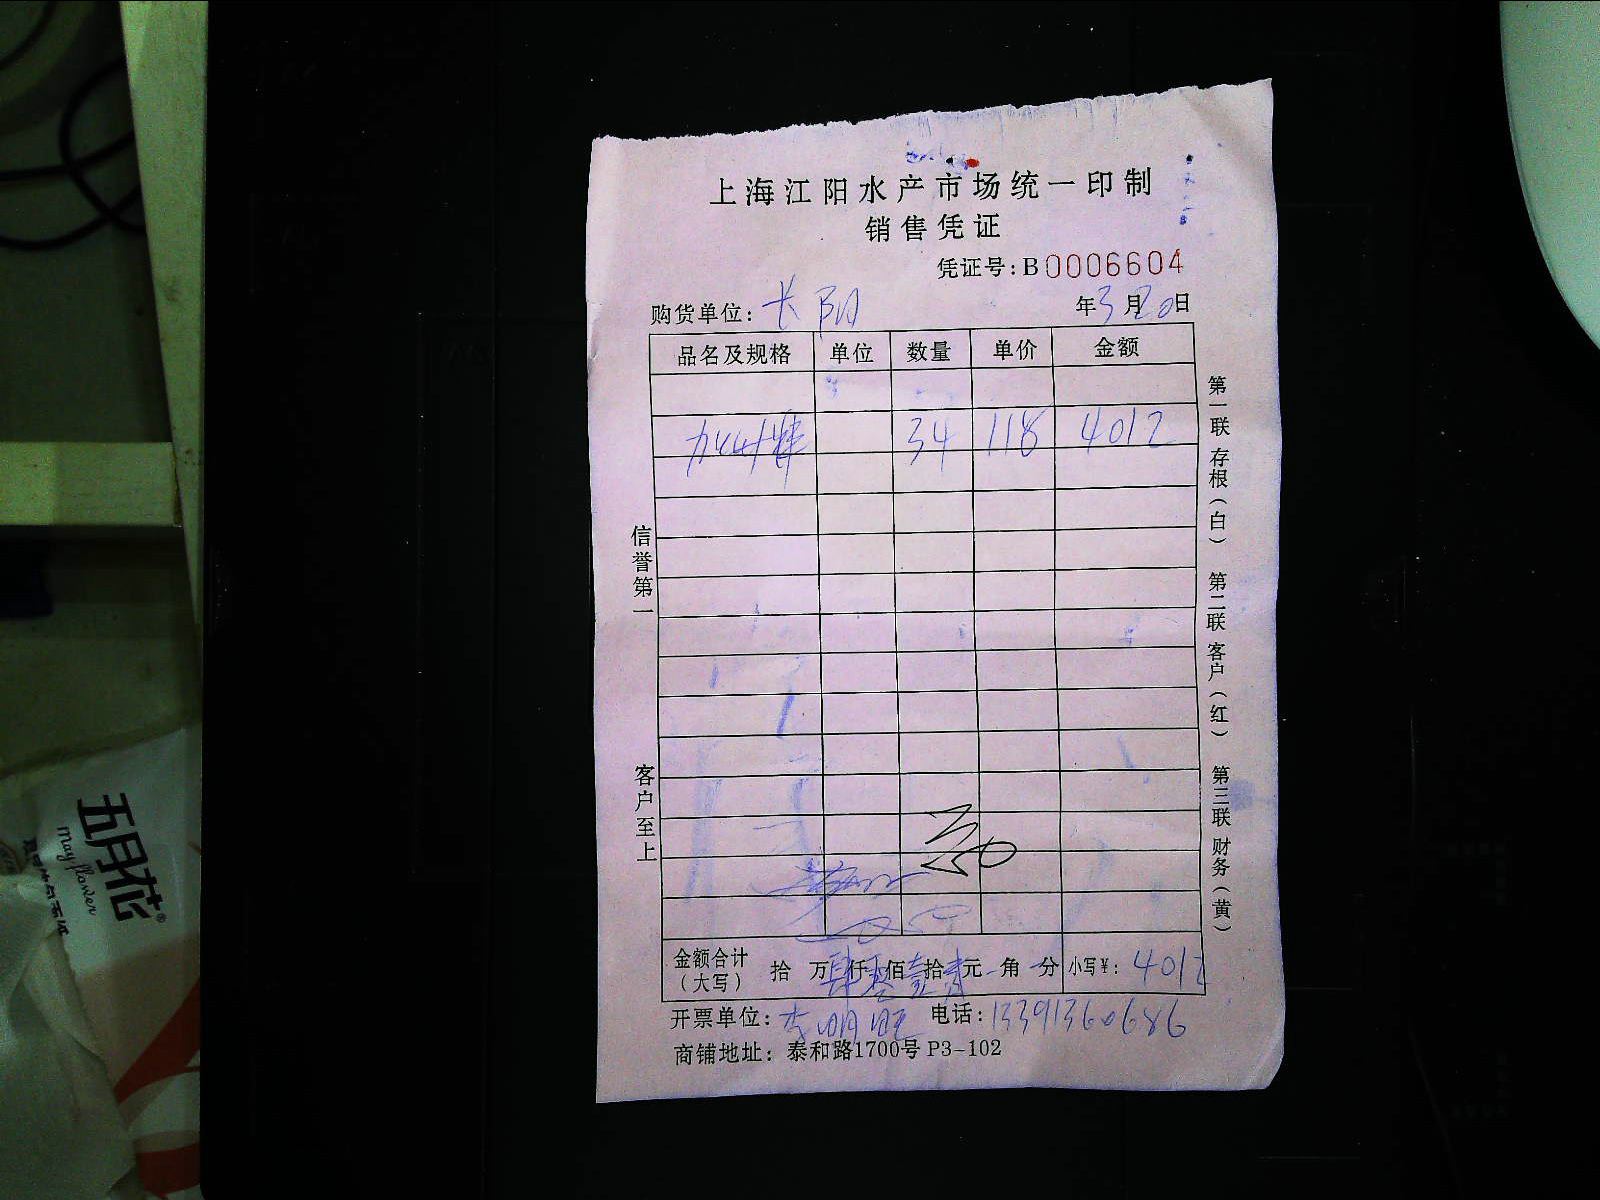 上海江阳水产市场统一印制
销售凭证
凭证号:B0006604
购货单位: 长阳 年3月20日
品名及规格 单位 数量 单价 金额
34 118 4012
信誉第一
客户至上
第一联 存根(白) 第二联 客户(红) 第三联 财务(黄)
金额合计(大写) 拾 万肆仟零佰壹拾贰元 角 分 小写¥: 4012
开票单位: 李明旺 电话: 13391360686
商铺地址: 泰和路1700号 P3-102
五月花
May flower